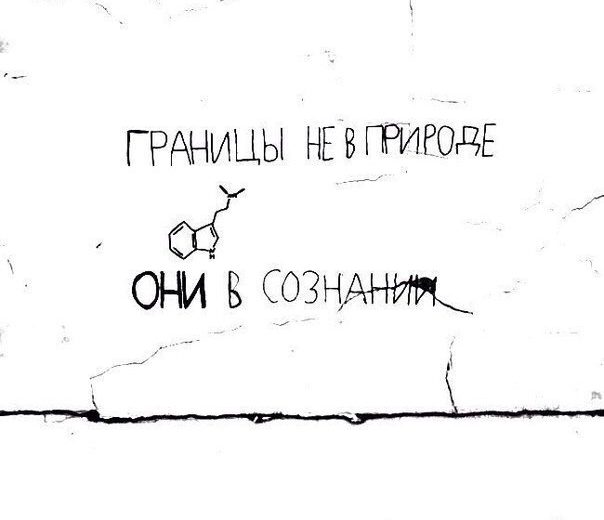 ГРАНИЦЫ НЕ В ПРИРОДЕ
N
N
H
ОНИ В СОЗНАНИИ